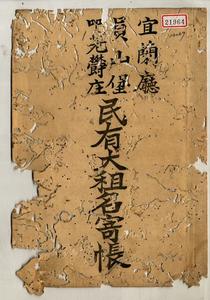 21964
宜蘭廳
員山堡
吧荖鬱庄
民有大租名寄帳